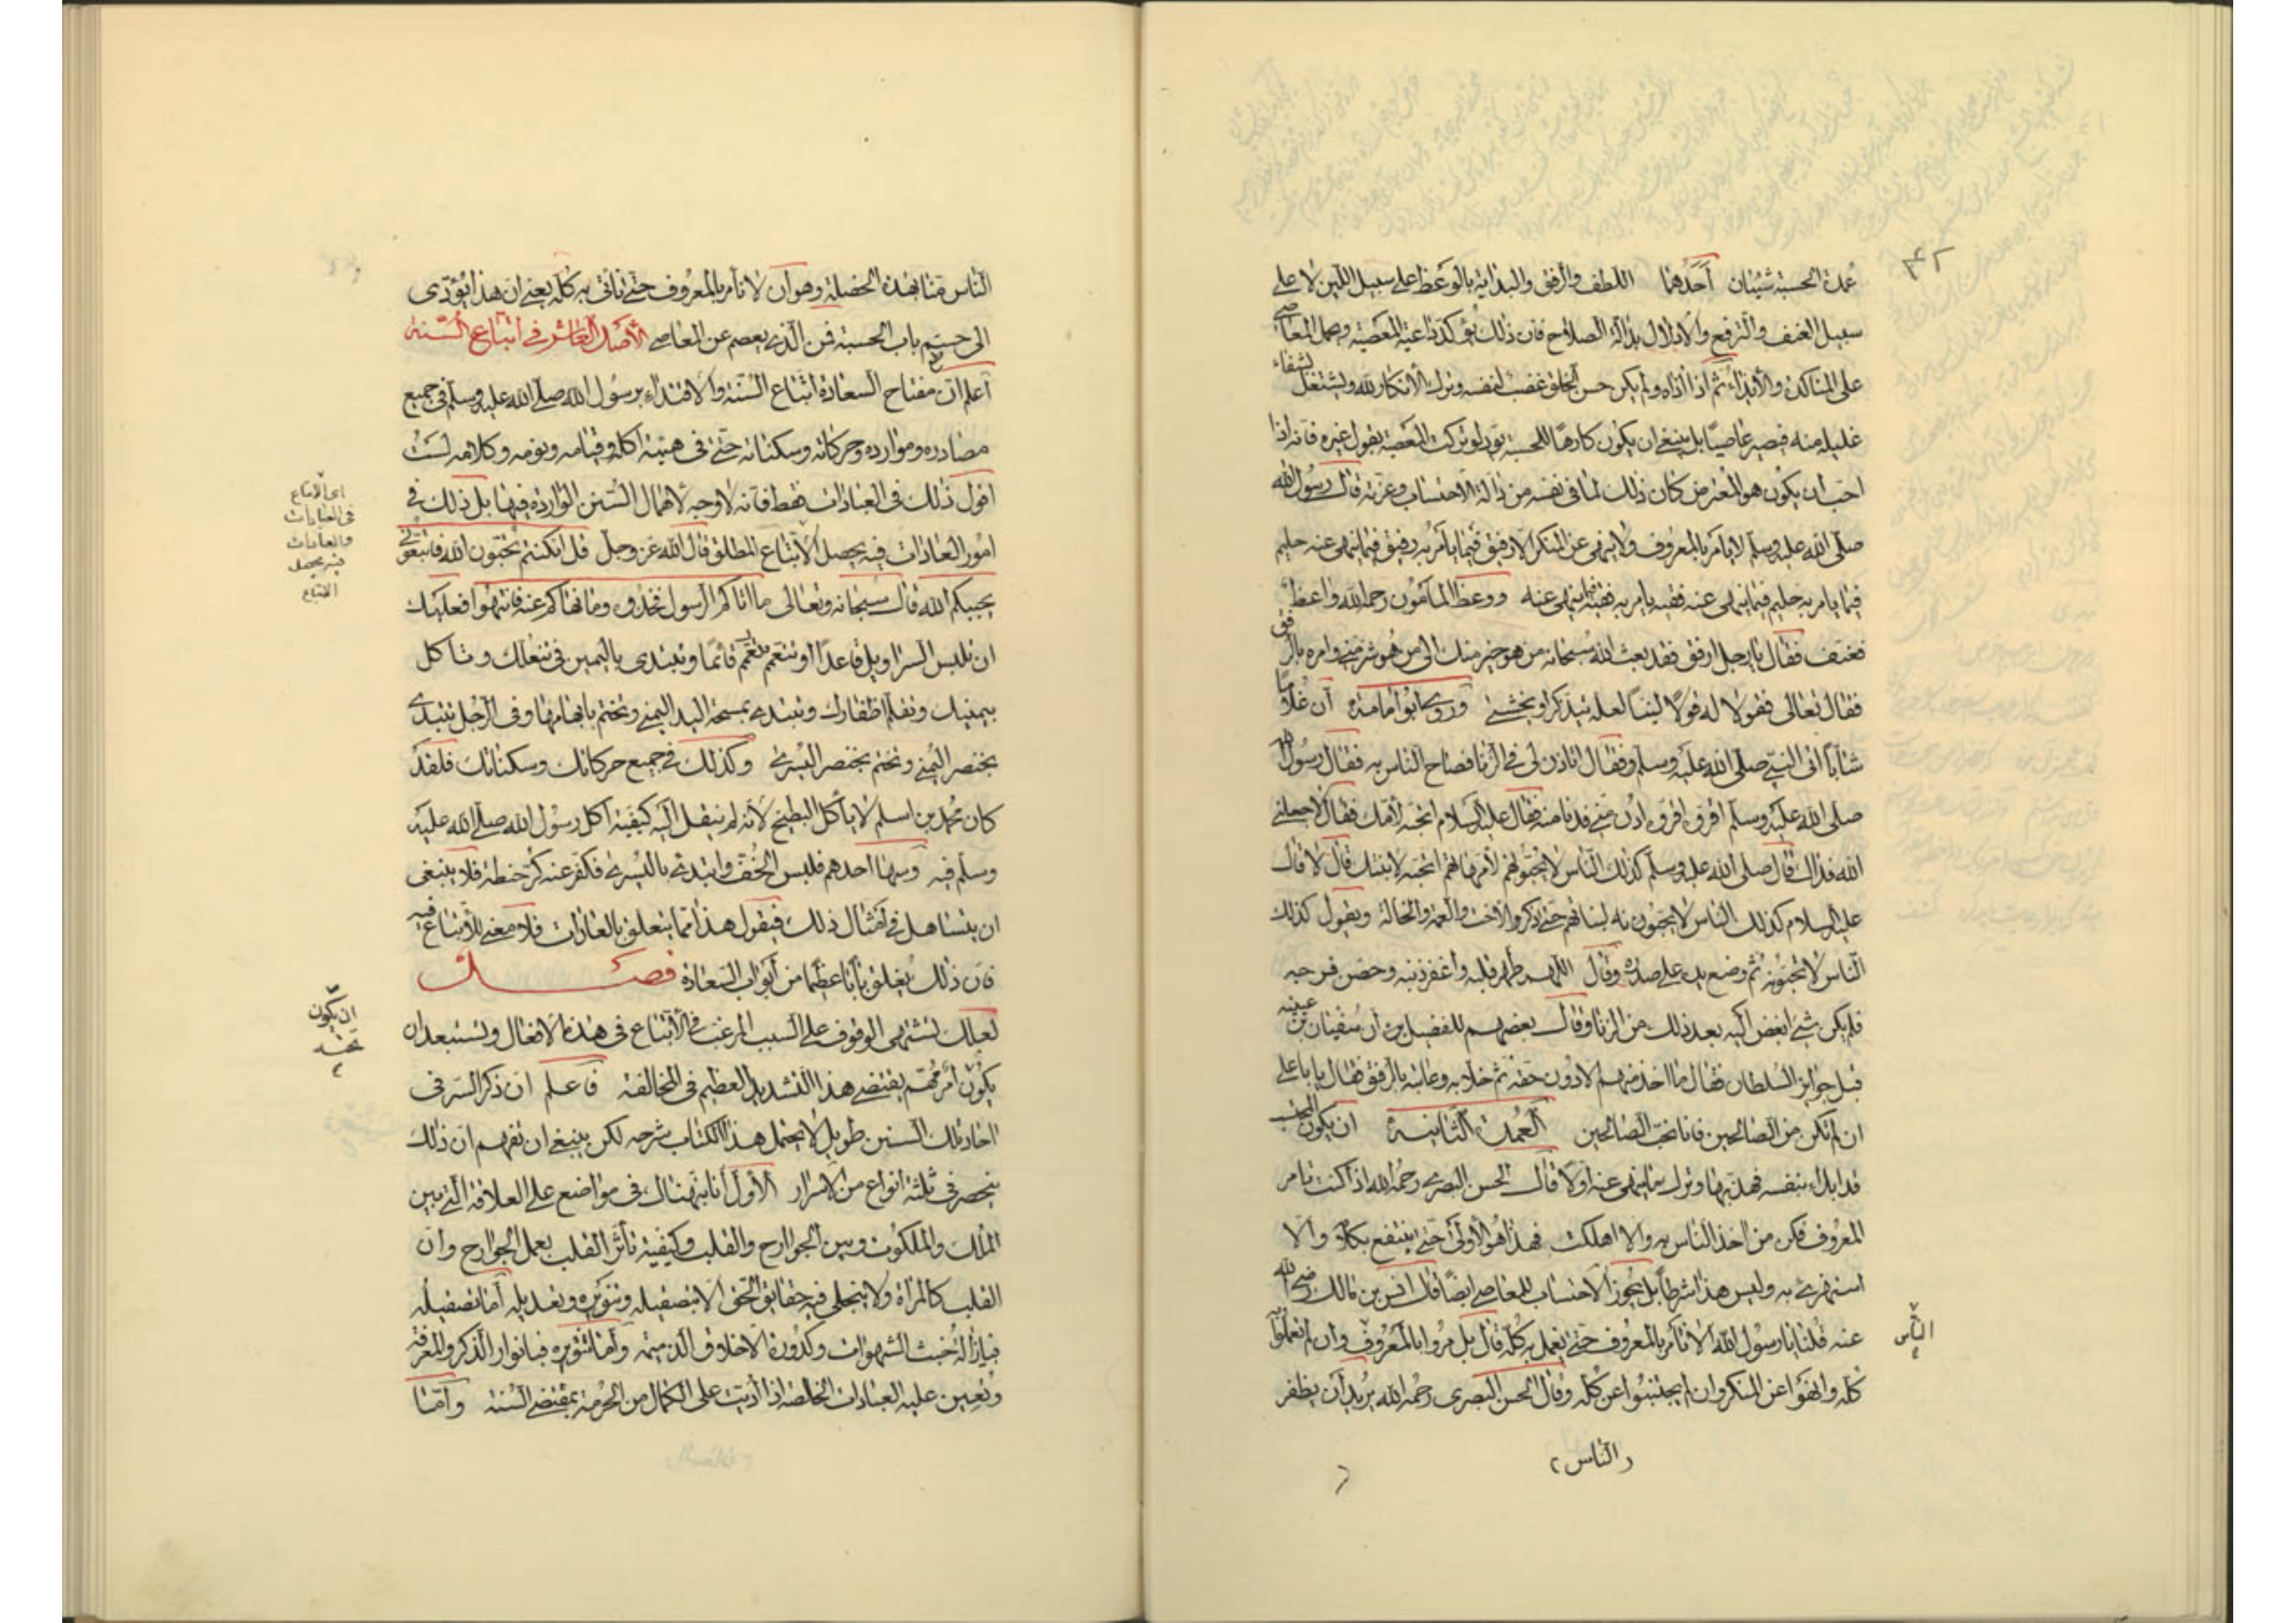 ٤٢
عمدة الحسبة شيئان احدهما اللطف والرفق والبداية بالوعظ على سبيل اللين لا على
سبيل العنف والترفع والادلال بدالة الصلاح فان ذلك يؤكد داعية المعصية ويحمل المعاصى
على المناكدة والايذاء ثم اذا اذاه ولم يكن حسن الخلق غضب لنفسه وترك الانكار لله ويشتغل لشفاء
غليله منه فيصير عاصيا بل ينبغى ان يكون كارها للحسبة يود لو تركت المعصية بقول غيره فانه اذا
احب ان يكون هو المعترض كان ذلك لما فى نفسه من دالة الاحتساب وعزته قال رسول الله
صلى الله عليه وسلم لا يامر بالمعروف ولا ينهى عن المنكر الا رفيق فيما يامر به رفيق فيما ينهى عنه حليم
فيما يامر به حليم فيما ينهى عنه فقيه يامر به فقيه فيما ينهى عنه ووعظ المامون رحمه الله واعظ
فعنف فقال يا رجل ارفق فقد بعث الله سبحانه من هو خير منك الى من هو شر منى وامره بالرفق
فقال تعالى فقولا له قولا لينا لعله يتذكر او يخشى وروى ابو امامة ان غلاما
شابا اتى النبى صلى الله عليه وسلم وفقال اتاذن لى فى الزنا فصاح الناس به فقال رسول الله
صلى الله عليه وسلم اقروه اقروه ادن منى فدنا منه فقال عليه السلام اتحبه لامك فقال لا جعلنى
الله فداك قال صلى الله عليه وسلم كذلك الناس لا يحبونه لامهاتهم اتحبه لابنتك قال لا قال
عليه السلام كذلك الناس لا يحبونه لبناتهم حتى ذكر الاخت والعمة والخالة ويقول كذلك
الناس لا يحبونه ثم وضع يده على صدره وقال اللهم طهر قلبه واغفر ذنبه وحصن فرجه
فلم يكن شئ ابغض اليه بعد ذلك من الزنا وقال بعضهم للفضيل ان سفيان بن عيينه
قبل جوايز السلطان فقال ما اخذ منهم الا دون حقه ثم خلا به وعاتبه بالرفق فقال يا ابا على
ان لم نكن من الصالحين فانا نحب الصالحين العمدة الثانية ان يكون المحتسب
قد ابدا بنفسه فهذبها وترك ما ينهى عنه اولا قال الحسن البصرى رحمه الله اذا كنت تامر
المعروف فكن من اخذ الناس به والا اهلكت فهذا هو الاولى حتى ينتفع بكلامه والا
استهزئ به وليس هذا شرطا بل يجوز الاحتساب للعاصى ايضا قال انس بن مالك رضى الله
عنه قلنا يا رسول الله الا نامر بالمعروف حتى نعمل به كله قال بل مروا بالمعروف وان لم تعملوا به
كله وانهوا عن المنكر وان لم تجتنبوا عن كله وقال الحسن البصرى رحمه الله يريد ان يظفر
الناس
الناس
الناس منا بهذه الخصلة وهو ان لا نامر بالمعروف حتى ناتى به كله يعنى ان هذا يؤدى
الى حسم باب الحسبة فمن الذى يعصم عن المعاصى الاصل العاشر فى اتباع السنة
اعلم ان مفتاح السعادة اتباع السنة والاقتداء برسول الله صلى الله عليه وسلم فى جميع
مصادره وموارده وحركاته وسكناته حتى فى هيئة اكله وقيامه ونومه وكلامه لست
اقول ذلك فى العبادات فقط فانه لا وجه لاهمال السنن الواردة فيها بل ذلك فى
امور العادات فيه يحصل الاتباع المطلق قال الله عز وجل قل ان كنتم تحبون الله فاتبعونى
يحببكم الله قال سبحانه وتعالى ما اتاكم الرسول فخذوه وما نهاكم عنه فانتهوا فعليك
ان تلبس السراويل قاعدا وتتعمم قائما وتبتدى باليمين فى تنعلك وتاكل
بيمينك وتقلم اظفارك وتبتدى بمسبحة اليد اليمنى وتختم بابهامها وفى الرجل تبتدى
بخنصر اليمنى وتختم بخنصر اليسرى وكذلك فى جميع حركاتك وسكناتك فلقد
كان محمد بن اسلم لا ياكل البطيخ لانه لم ينقل اليه كيفية اكل رسول الله صلى الله عليه
وسلم فيه وسها احدهم فلبس الخف وابتدى باليسرى فكفر عنه كر حنطة فلا ينبغى
ان يتساهل فى امثال ذلك فيقول هذا مما يتعلق بالعادات فلا معنى للاتباع فيه
فان ذلك يغلق بابا عظيما من ابواب السعادة فصل
لعلك تشتهى الوقوف على السبب المرغب فى الاتباع فى هذه الافعال وتستبعد ان
يكون امر مهم يقتضى هذا التشديد العظيم فى المخالفة فاعلم ان ذكر السر فى
احاد تلك السنن طويل لا يحتمل هذا الكتاب شرحه لكن ينبغى ان تفهم ان ذلك
ينحصر فى ثلثة انواع من الاسرار الاول انا نبهناك فى مواضع على العلاقة التى بين
الملك والملكوت وبين الجوارح والقلب وكيفية تاثر القلب بعمل الجوارح وان
القلب كالمراة ولا يتجلى فيه حقائق الحق الا بتصقيله وتنويره وتعديله اما تصقيله
فبازالة خبث الشهوات وكدورة الاخلاق الذميمة واما تنويره فبانوار الذكر والمعرفة
ويعين عليه العبادات الخالصة اذا اديت على الكمال من الحرمة بمقتضى السنة واما
اى الاتباع
فى العبادات
والعادات
فيه يحصل
الاتباع
ان يكون
تحت